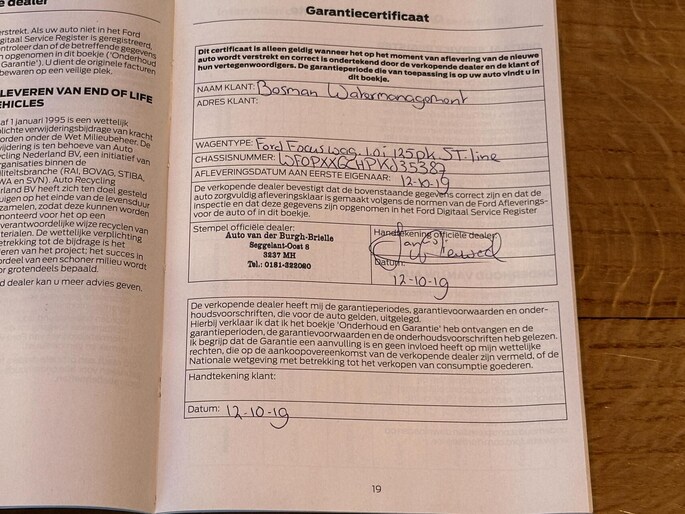 e dealer
erstrekt. Als uw auto niet in het Ford
igitaal Service Register is geregistreerd,
ntroleer dan of de betreffende gegevens
n opgenomen in dit boekje ('Onderhoud
Garantie'). U dient de originele facturen
bewaren op een veilige plek.
LEVEREN VAN END OF LIFE
EHICLES
af 1 januari 1995 is een wettelijk
plichte verwijderingsbijdrage van kracht
orden onder de Wet Milieubeheer. De
wijdering is ten behoeve van Auto
ycling Nederland BV, een initiatief van
rganisaties binnen de
iliteitsbranche (RAI, BOVAG, STIBA,
WA en SVN). Auto Recycling
rland BV heeft zich ten doel gesteld
uigen op het einde van de levensduur
zamelen, zodat deze kunnen worden
monteerd voor het op een
verantwoordelijke wijze recyclen van
terialen. De wettelijke verplichting
etrekking tot de bijdrage is het
eren van het project; het succes in
ordeel van een schoner milieu wordt
or grotendeels bepaald.
d dealer kan u meer advies geven.
Garantiecertificaat
Dit certificaat is alleen geldig wanneer het op het moment van aflevering van de nieuwe
auto wordt verstrekt en correct is ondertekend door de verkopende dealer en de klant of
hun vertegenwoordigers. De garantieperiode die van toepassing is op uw auto vindt u in
dit boekje.
NAAM KLANT: Bosman Watermanagement
ADRES KLANT:
WAGENTYPE: Ford Focus wag. 1.0i 125pk. ST. line
CHASSISNUMMER: WF0PXXGCHPKJ35387
AFLEVERINGSDATUM AAN EERSTE EIGENAAR: 12-10-19
De verkopende dealer bevestigt dat de bovenstaande gegevens correct zijn en dat de
auto zorgvuldig afleveringsklaar is gemaakt volgens de normen van de Ford Afleverings-
inspectie en dat deze gegevens zijn opgenomen in het Ford Digitaal Service Register
voor de auto of in dit boekje.
Stempel officiële dealer:
Auto van der Burgh-Brielle
Seggelant-Oost 8
3237 MH
Tel.: 0181-322020
Handtekening officiële dealer
Datum:
12-10-19
De verkopende dealer heeft mij de garantieperiodes, garantievoorwaarden en onder-
houdsvoorschriften, die voor de auto gelden, uitgelegd.
Hierbij verklaar ik dat ik het boekje 'Onderhoud en Garantie' heb ontvangen en de
garantieperioden, de garantievoorwaarden en de onderhoudsvoorschriften heb gelezen.
Ik begrijp dat de Garantie een aanvulling is en geen invloed heeft op mijn wettelijke
rechten, die op de aankoopovereenkomst van de verkopende dealer zijn vermeld, of de
Nationale wetgeving met betrekking tot het verkopen van consumptie goederen.
Handtekening klant:
Datum: 12-10-19
19